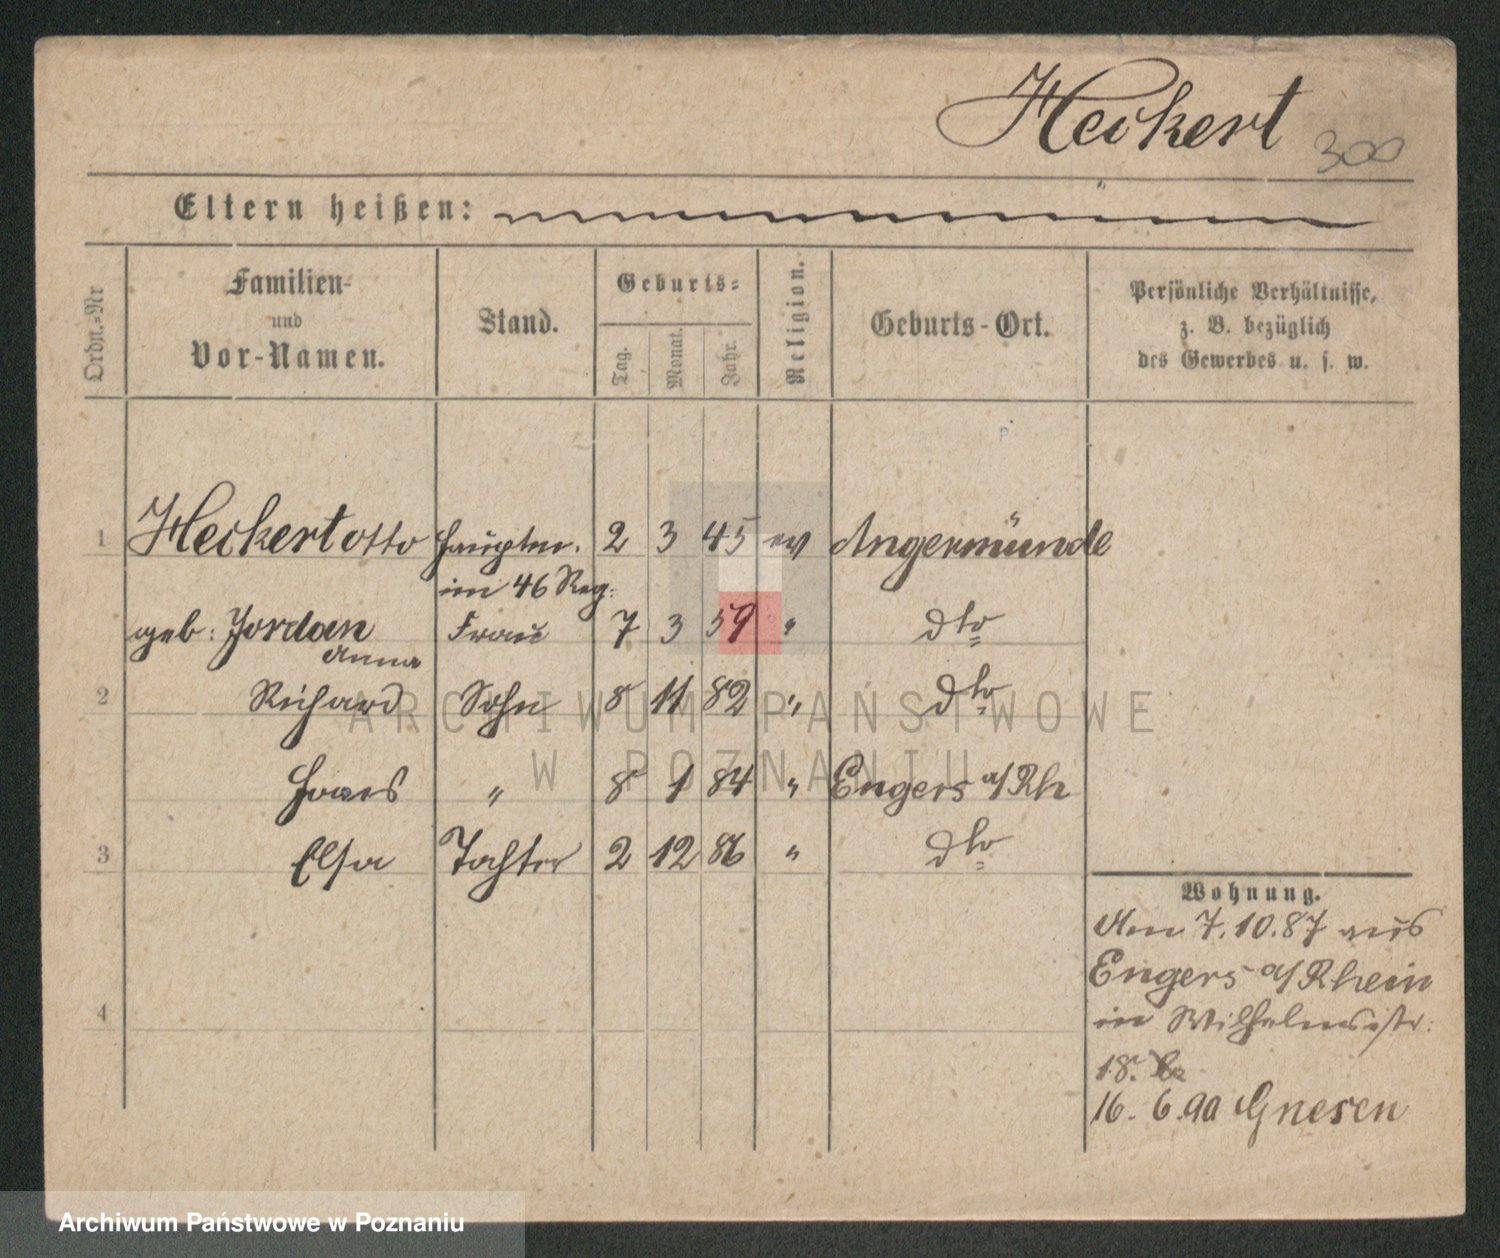 Heckert 300
Eltern heißen:
Ordn.-Nr
Familien-
und
Vor-Namen.
Stand.
Geburts-
Tag.
Monat.
Jahr.
Religion.
Geburts-Ort.
Persönliche Verhältnisse,
z. B. bezüglich
des Gewerbes u. s. w.
1 Heckert Otto Hauptm. 2 3 45 ev Angermünde
im 46 Reg:
geb: Jordan Frau 7 3 59 " dto
Anna
2 Richard Sohn 8 11 82 " dto
Hans " 8 1 84 " Engers a/Rh
3 Elsa Tochter 2 12 86 " dto
4
Wohnung.
Am 7.10.87 aus
Engers a/Rhein
in Wilhelmsstr:
18.
16. 6.90 Gnesen
ARCHIWUM PAŃSTWOWE
W POZNANIU
Archiwum Państwowe w Poznaniu